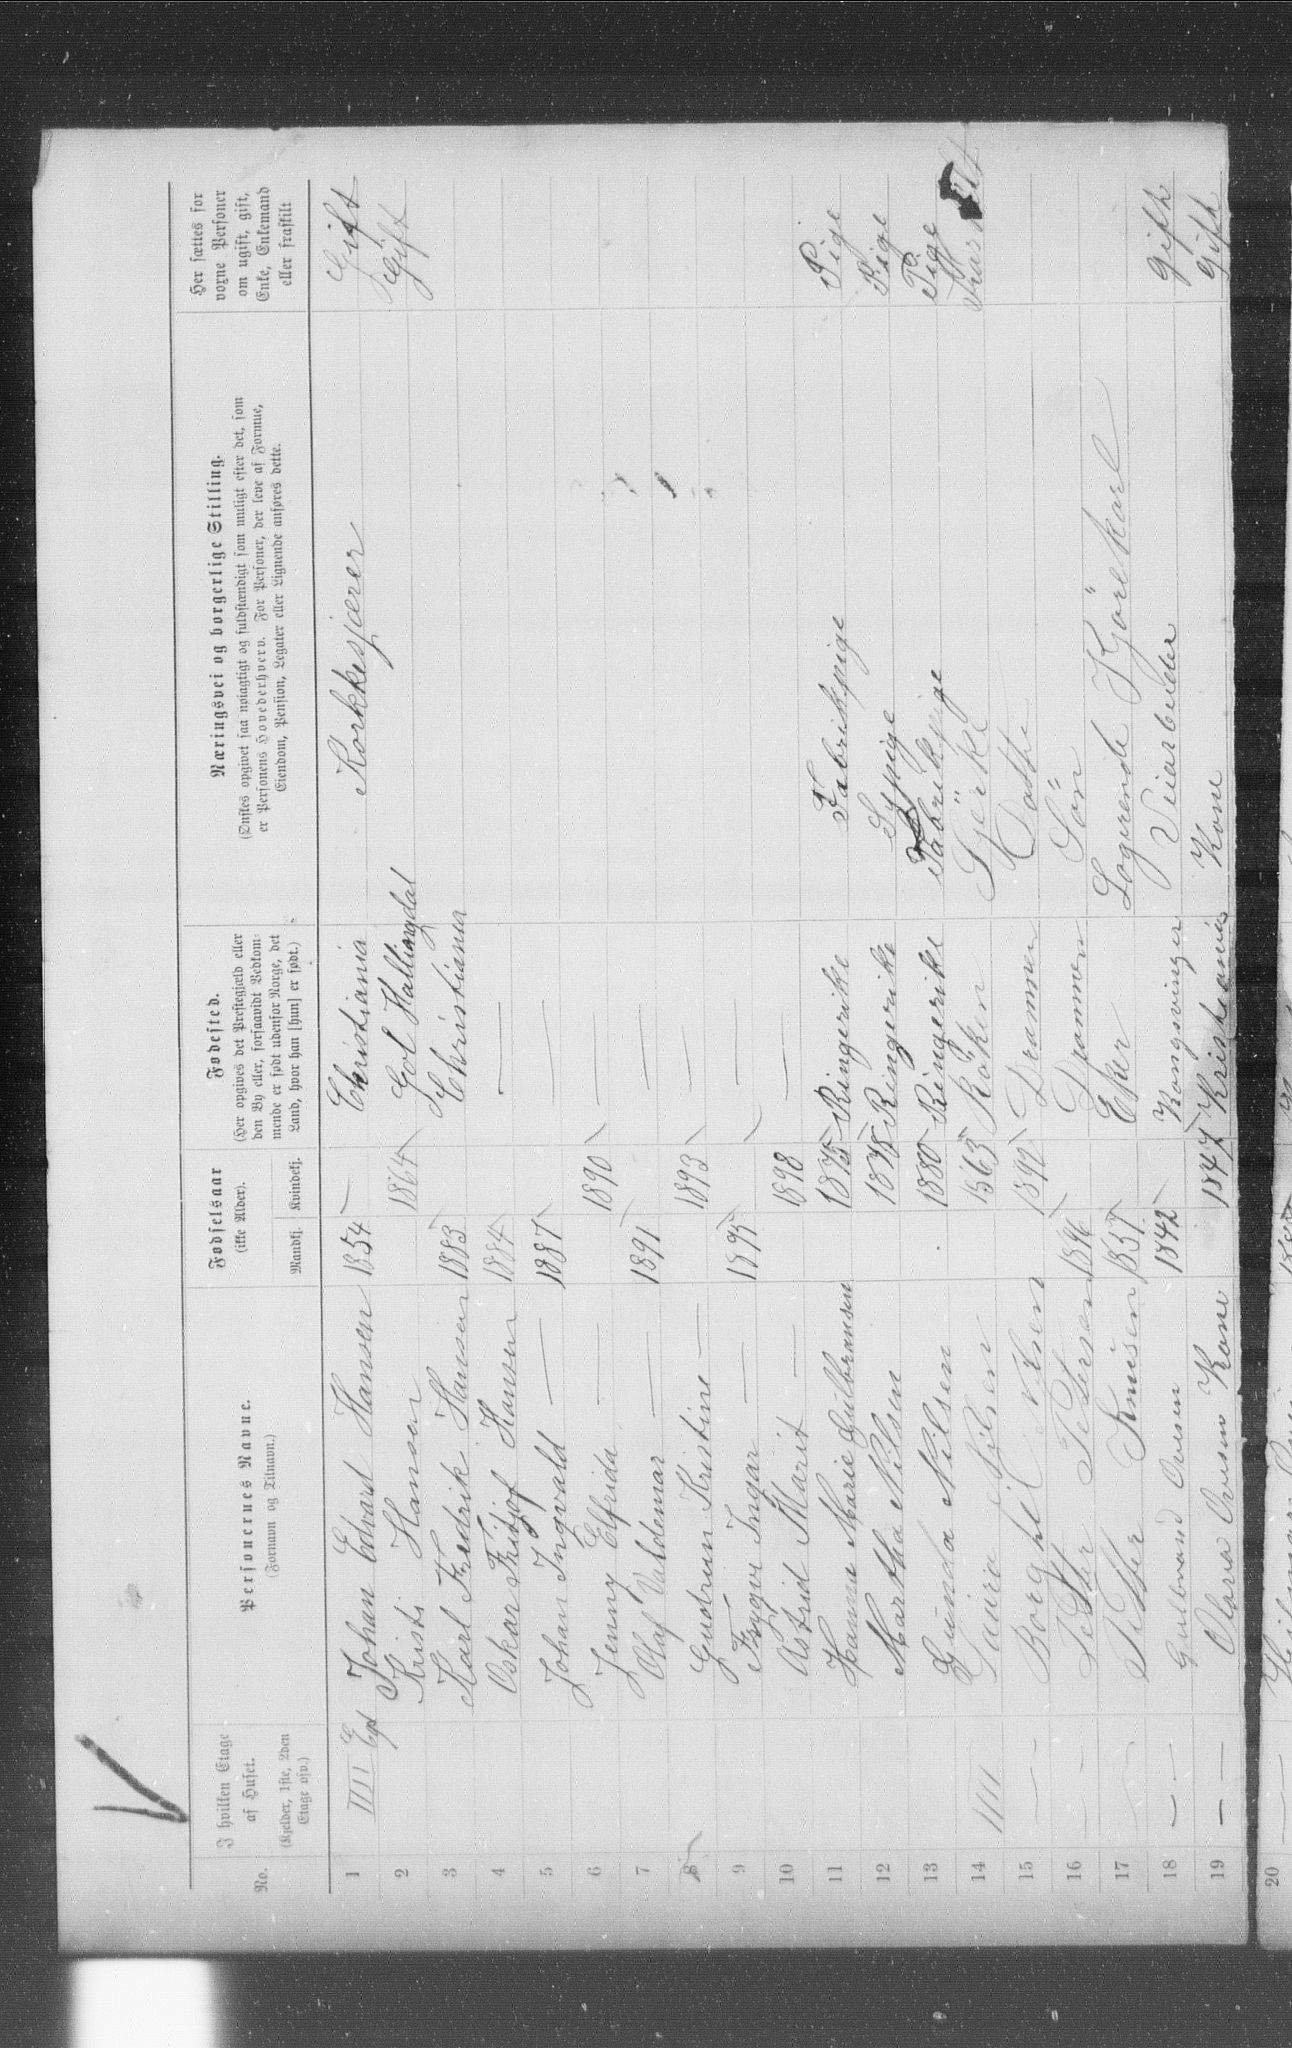 No.
I hvilken Etage af Huset.
(Kjelder, 1ste, 2den Etage osv.)
Personernes Navne.
(Fornavn og Tilnavn.)
Fødselsaar
(ikke Alder).
Mandkj. Kvindekj.
Fødested.
(Her opgives det Prestegjæld eller den By eller, forsaavidt Vedkommende er født udenfor Norge, det Land, hvor han [hun] er født.)
Næringsvei og borgerlige Stilling.
(Ønskes opgivet saa nøiagtigt og fuldstændigt som muligt efter det, som er Personens Hovederhverv. For Personer, der leve af Formue, Eiendom, Pension, Legater eller Lignende anføres dette.
Her sættes for voxne Personer om ugift, gift, Enke, Enkemand eller fraskilt
1 IIII Etg Johan Edvard Hansen 1854 — Christiania Korkkesjærer Gift
2 Kristi Hansen 1864 Gol Hallingdal Gift
3 Karl Fredrik Hansen 1883 Christiania
4 Oskar Fritjof Hansen 1884 —
5 Johan Ingvald — 1887 —
6 Jenny Elfrida — 1890 —
7 Olaf Valdemar — 1891 —
8 Gudrun Kristine — 1893 —
9 Trygve Ingar — 1895 —
10 Astrid Marit — 1898 —
11 Hanna Marie Gulbransen 1875 Ringerike Fabrikpige Pige
12 Martha Nilsen 1878 Ringerike Sypige Pige
13 Gunda Nilsen 1880 Ringerike Fabrikpige Pige
14 IIII Nilsen 1863 Röken
15 — Borghil Nilsen 1892 Drammen Datter
16 - Petter Petersen 1896 Drammen Sön
17 - Petter Knusen 1857 Eker Logerende Kjörekarl
18 — Gulbrand Ovesen 1842 Kongsvinger Veiarbeider gift
19 — Olava Ovesen Kone 1847 Kristiania Kone gift
20 —